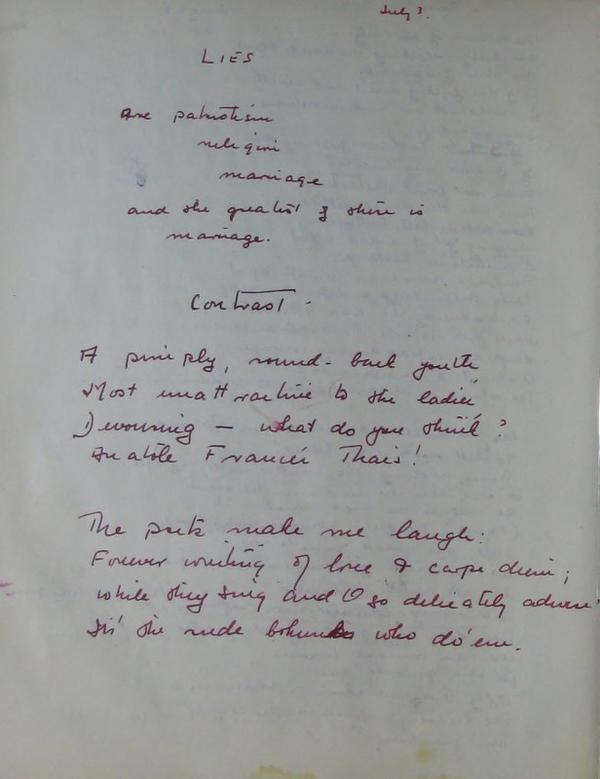 July 3.
LIES
Are patriotism
religion
marriage
and the greatest of these is
marriage.
Contrast -
A pimply, round-back youth
Most unattractive to the ladies,
Devouring — what do you think?
Anatole France's Thais!
The poets make me laugh:
Forever writing of love & carpe diem;
While they sing and O so delicately
It's the rude bohunks who do 'em.